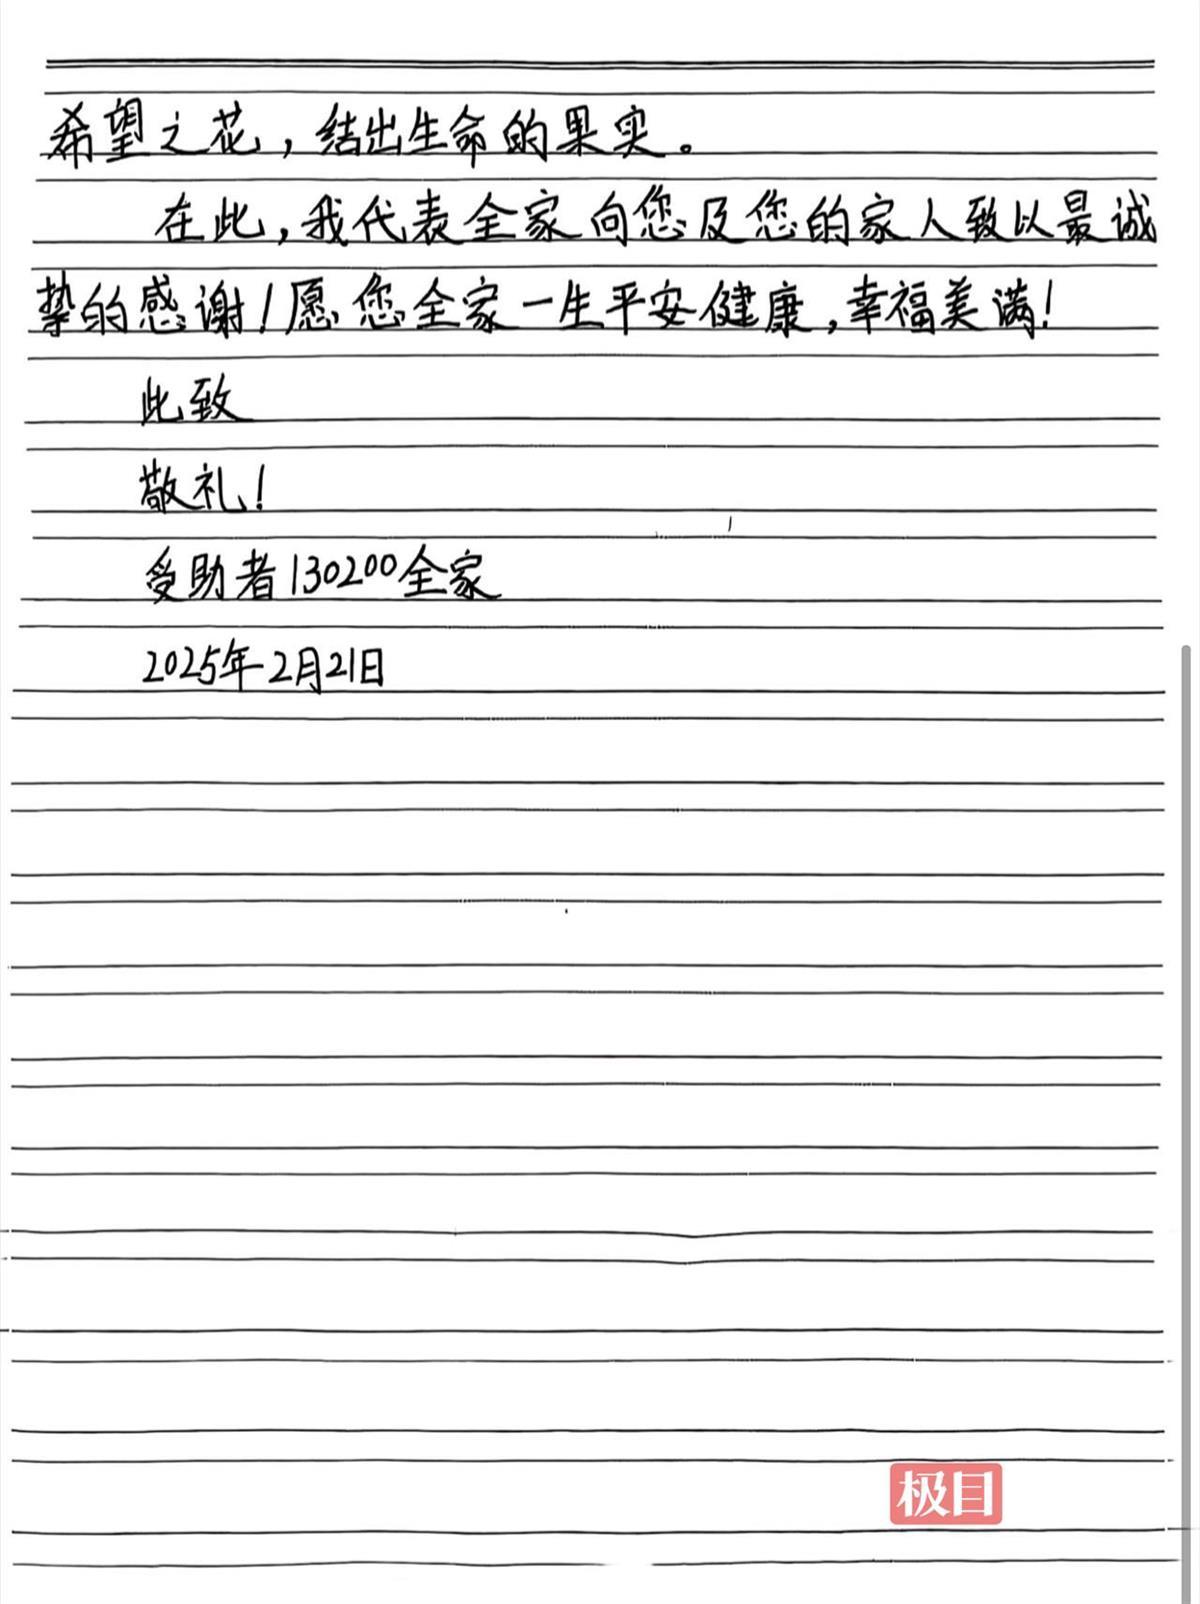 希望之花，结出生命的果实。
在此，我代表全家向您及您的家人致以最诚
挚的感谢！愿您全家一生平安健康，幸福美满！
此致
敬礼！
受助者130200全家
2025年2月21日
极目